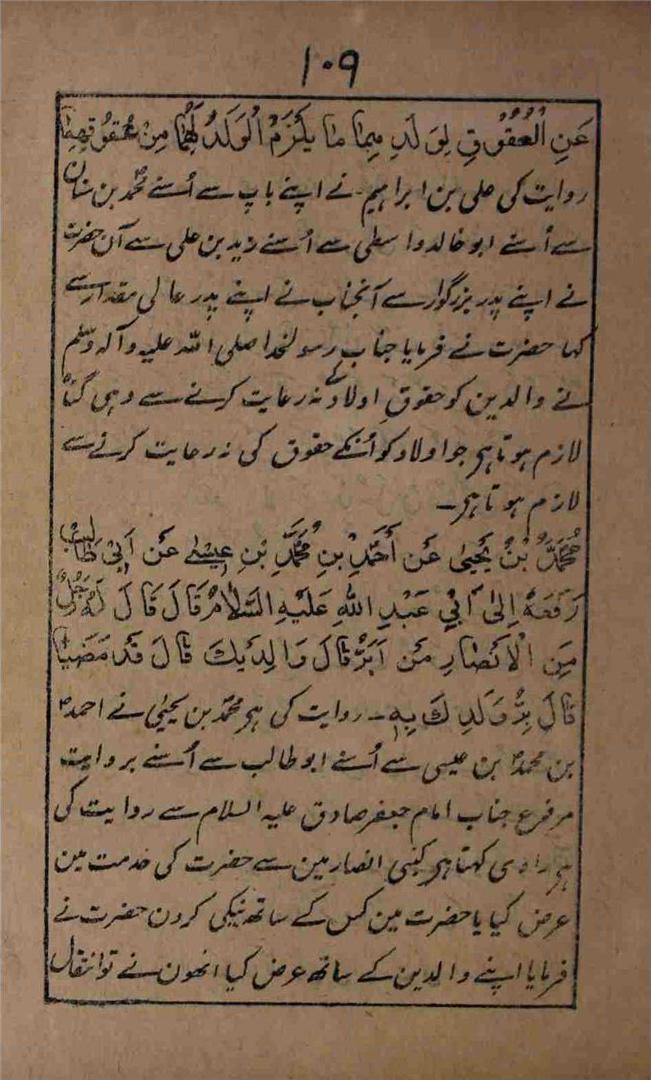 ۱۰۹
عَنِ الْعُقُوْقِ لِوَلَدِ هِمَا مَا يَلْزَمُ الْوَلَدُ لَهُمَا مِنْ عُقُوْقِهِمَا
روایت کی علی بن ابراہیم نے اپنے باپ سے اُسنے محمد بن سنان
سے اُسنے ابو خالد واسطی سے اُسنے زید بن علی سے آن حضرت
نے اپنے پدر بزرگوار سے آنجناب نے اپنے پدر عالی مقدار سے
کہا حضرت نے فرمایا جناب رسولخدا صلی اللہ علیہ وآلہ وسلم
نے والدین کو حقوقِ اولاد کے نہ رعایت کرنے سے وہی گناہ
لازم ہوتا ہے جو اولاد کو اُنکے حقوق کی نہ رعایت کرنے سے
لازم ہوتا ہے۔
مُحَمَّدُ بْنُ يَحْيٰى عَنْ أَحْمَدَ بْنِ مُحَمَّدِ بْنِ عِيسٰى عَنْ اَبِىْ طَالِبٍ
رَفَعَهُ اِلىٰ اَبِىْ عَبْدِ اللهِ عَلَيْهِ السَّلَامُ قَالَ قَالَ لَهُ رَجُلٌ
مِنَ الْاَنْصَارِ مَنْ اَبَرُّ قَالَ وَالِدَيْكَ قَالَ قَدْ مَضَيَا
قَالَ بِرَّ وَلَدِكَ بِهٖ۔ روایت کی ہے محمد بن یحییٰ نے احمد
بن محمد بن عیسی سے اُسنے ابو طالب سے اُسنے بروایت
مرفوع جناب امام جعفر صادق علیہ السلام سے روایت کی
ہے راوی کہتا ہے کسی انصار مین سے حضرت کی خدمت مین
عرض کیا یا حضرت مین کس کے ساتھ نیکی کرون حضرت نے
فرمایا اپنے والدین کے ساتھ عرض کیا انھون نے تو انتقال